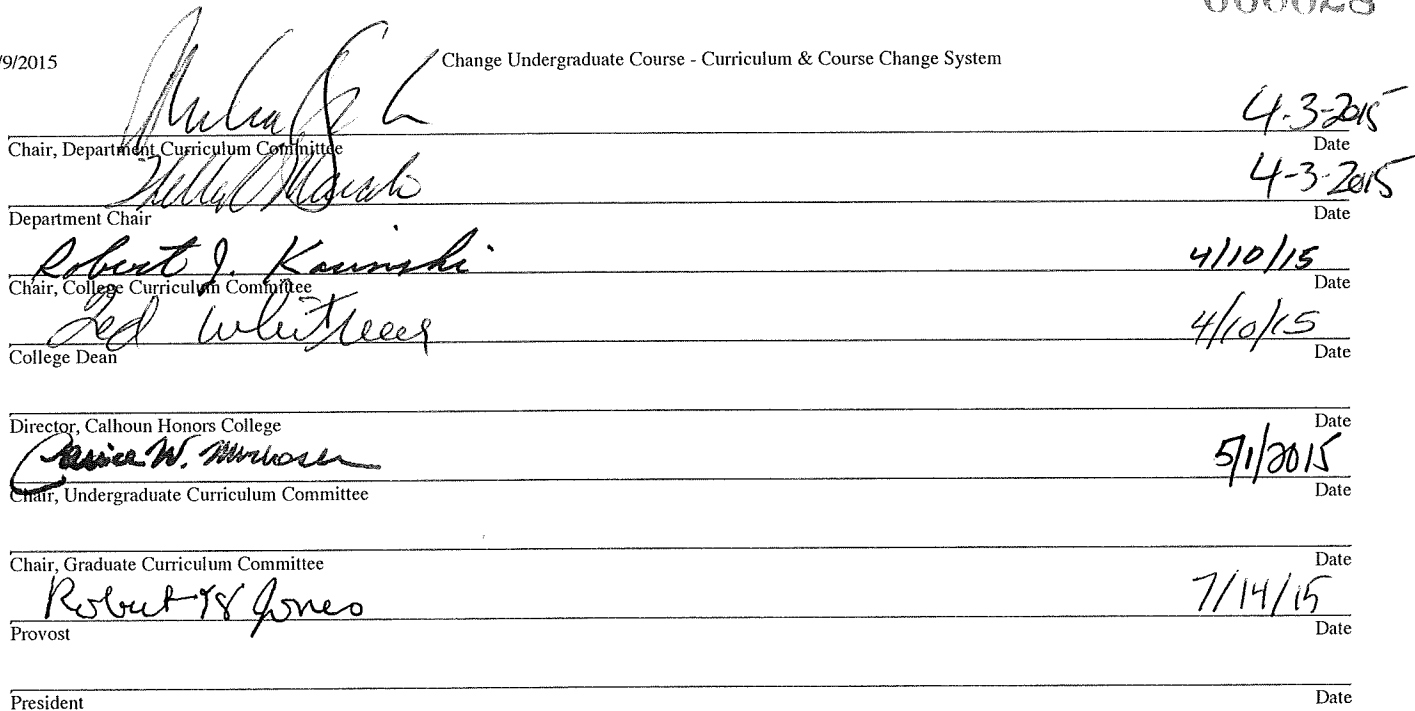 /9/2015 Change Undergraduate Course - Curriculum & Course Change System
4-3-2015
Chair, Department Curriculum Committee Date
4-3-2015
Department Chair Date
Robert J. Kosinski 4/10/15
Chair, College Curriculum Committee Date
Ted Whitwell 4/10/15
College Dean Date
Director, Calhoun Honors College Date
W. 5/1/2015
Chair, Undergraduate Curriculum Committee Date
Chair, Graduate Curriculum Committee Date
Robert Jones 7/14/15
Provost Date
President Date